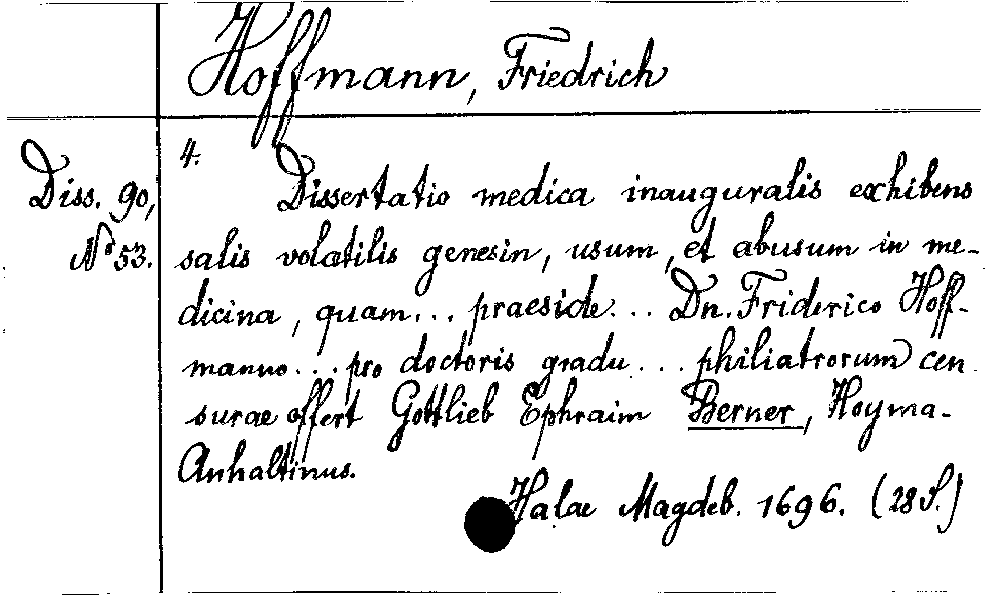 Hoffmann, Friedrich
4.
Diss. 90,
No 53.
Dissertatio medica inauguralis exhibens
salis volatilis genesin, usum, et abusum in me-
dicina, quam... praeside... Dn. Friderico Hoff-
manno... pro doctoris gradu... philiatrorum cen
surae offert Gottlieb Ephraim Berner, Hoyma-
Anhaltinus.
Halae Magdeb. 1696. (28 S.)